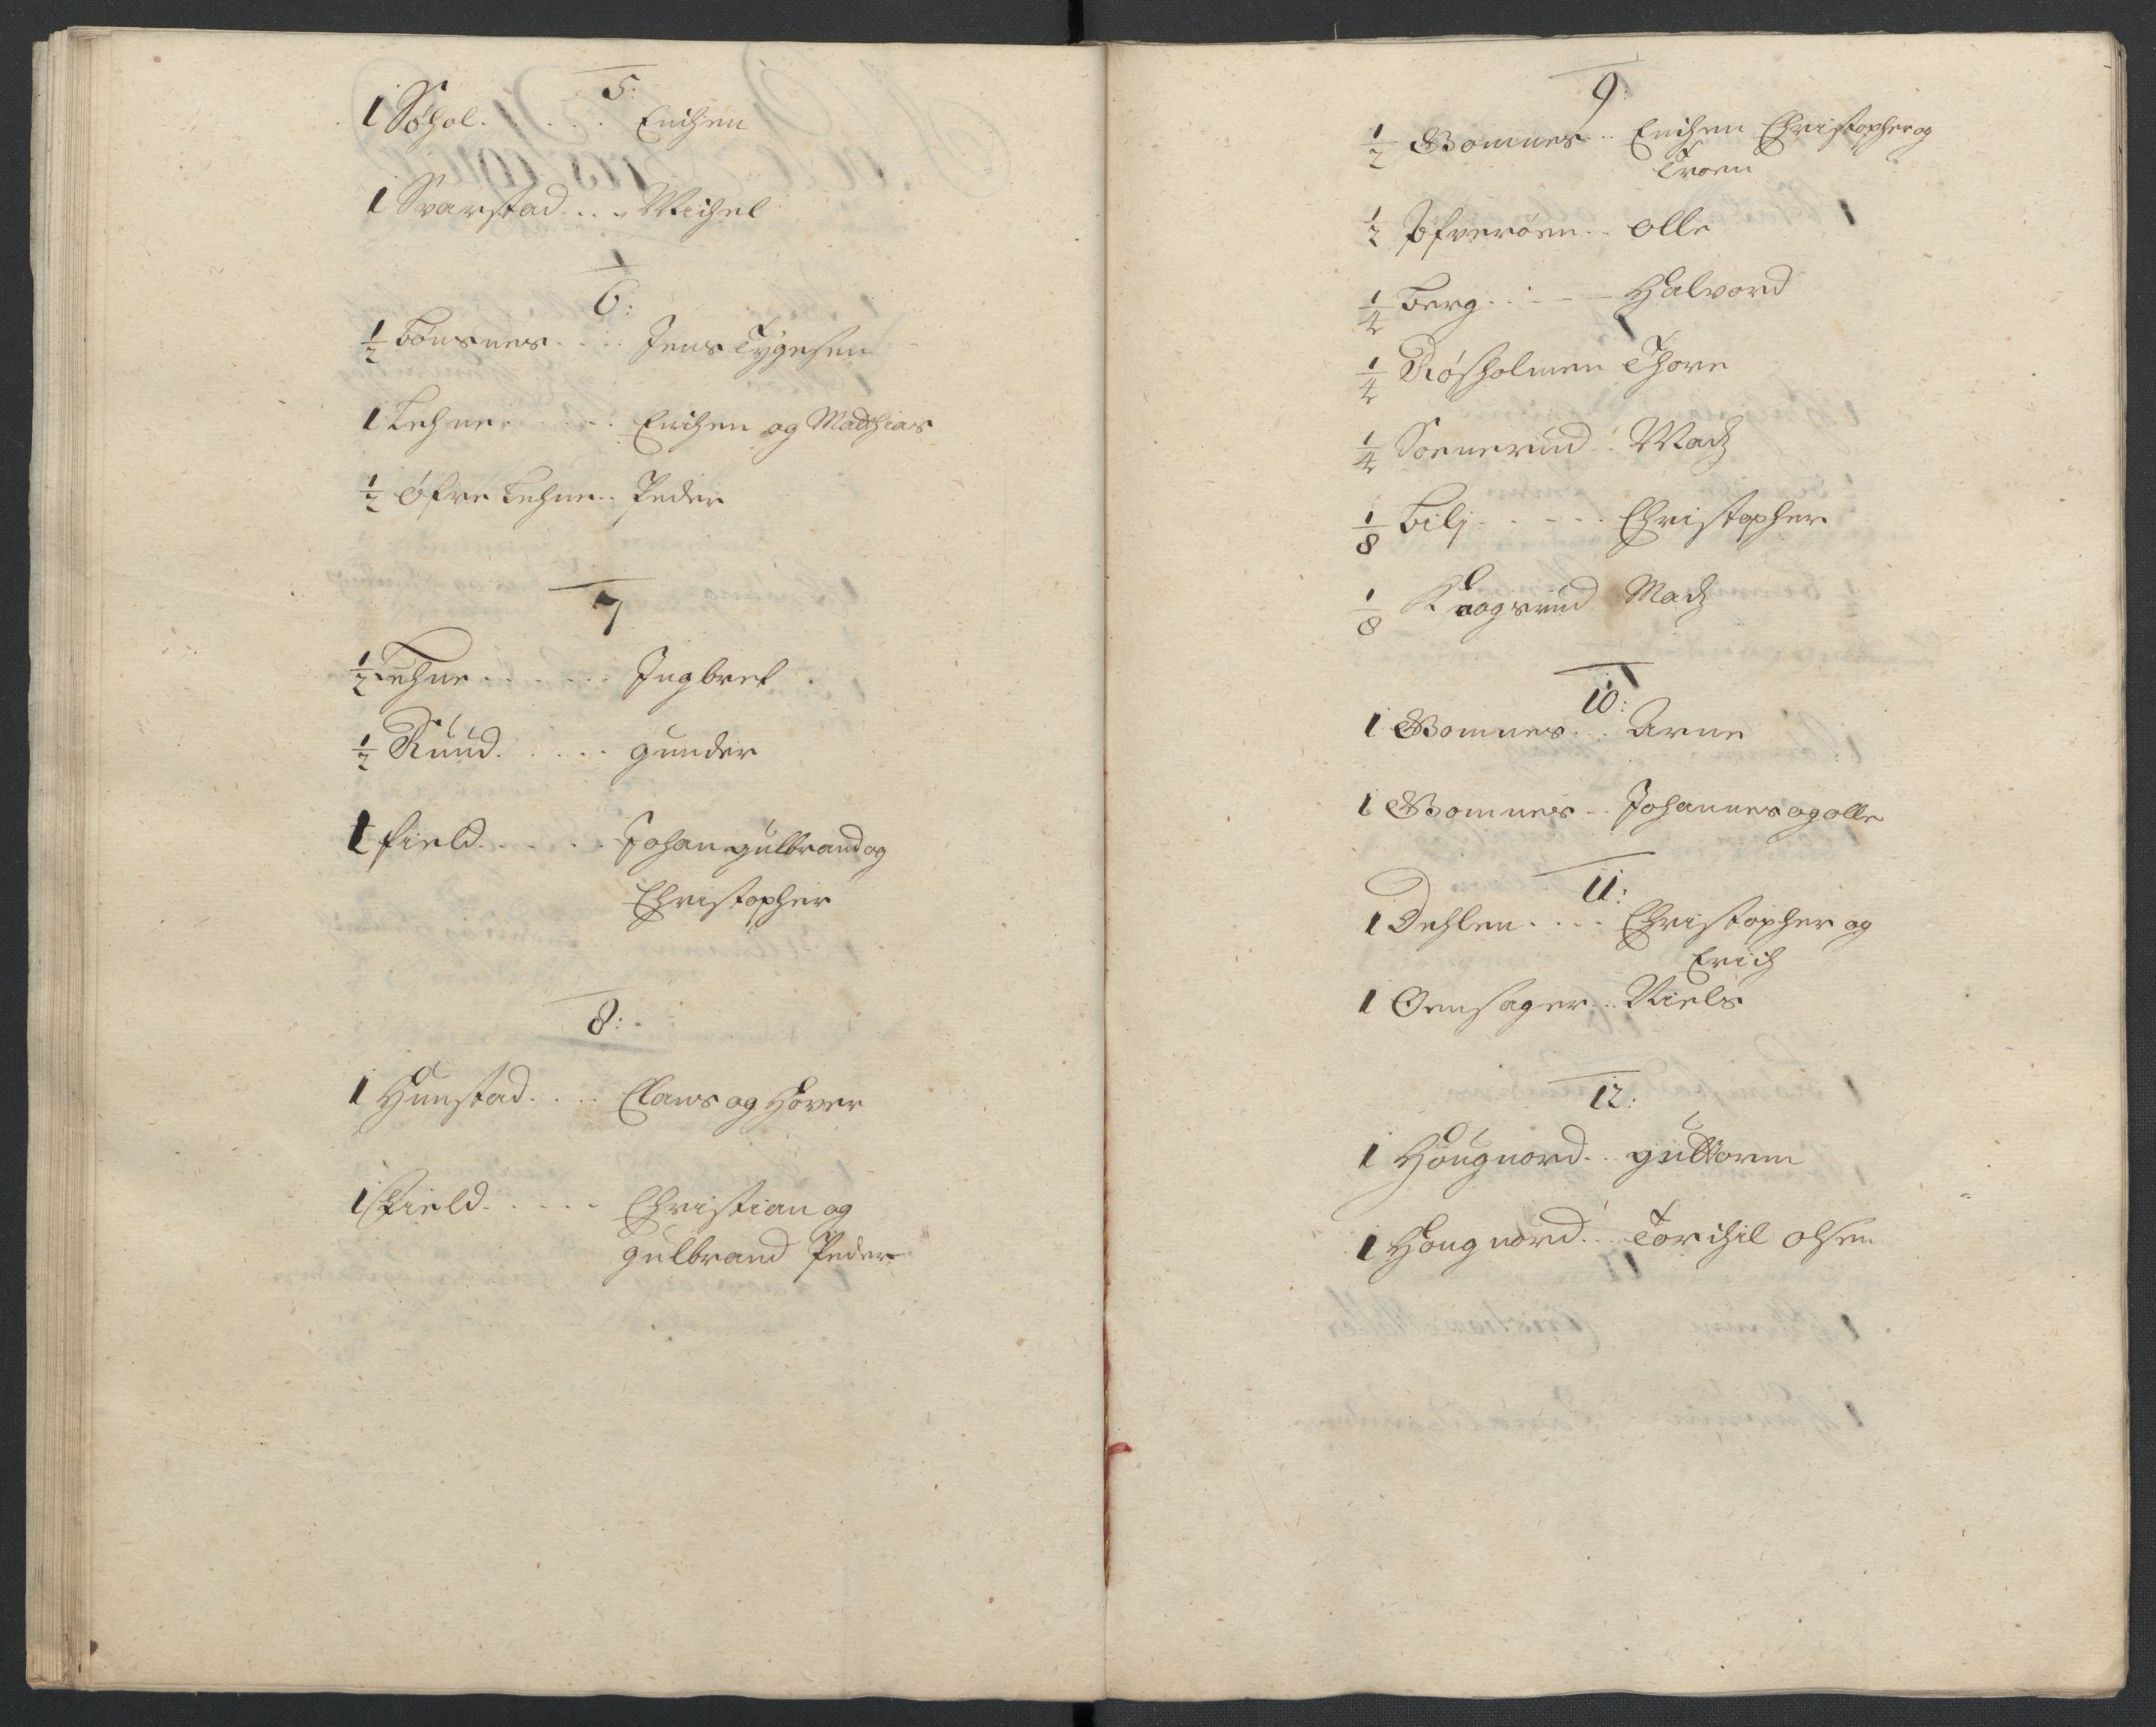 5:
1 Søhol . . . . . Enchen
1 Svarstad . . . Michel
6:
1/2 Bønsnes . . . . Jens Tygesen
1 Lehne . . . . . Enchen og Matthias
1/2 Øfre Lehne . . Peder
7
1/2 Lehne . . . . . . Ingbret
1/2 Ruud . . . . . gunder
1 field . . . . . Johan gulbrand og
Christopher
8:
1 Hunstad . . . . Claus og Hover
1 Field . . . . . Christian og
gulbrand Peder
9:
1/2 Gomnes . . Enchen Christopher og
Troen
1/2 olle
1/4 Berg . . . . . Halvord
1/4 Røsholmen Thore
1/4 Sonerud . Madz
1/8 Bili . . . . . Christopher
1/8 Kragsrud Madz
10:
1 Gomnes . . . Arne
1 Gomnes . . Johannes og olle
11:
1 Dehlen . . . . Christopher og
Erich
1 Onsager . . Niels
12:
1 Hougnord . . guttorm
1 Hougnord . . Torchil olsen